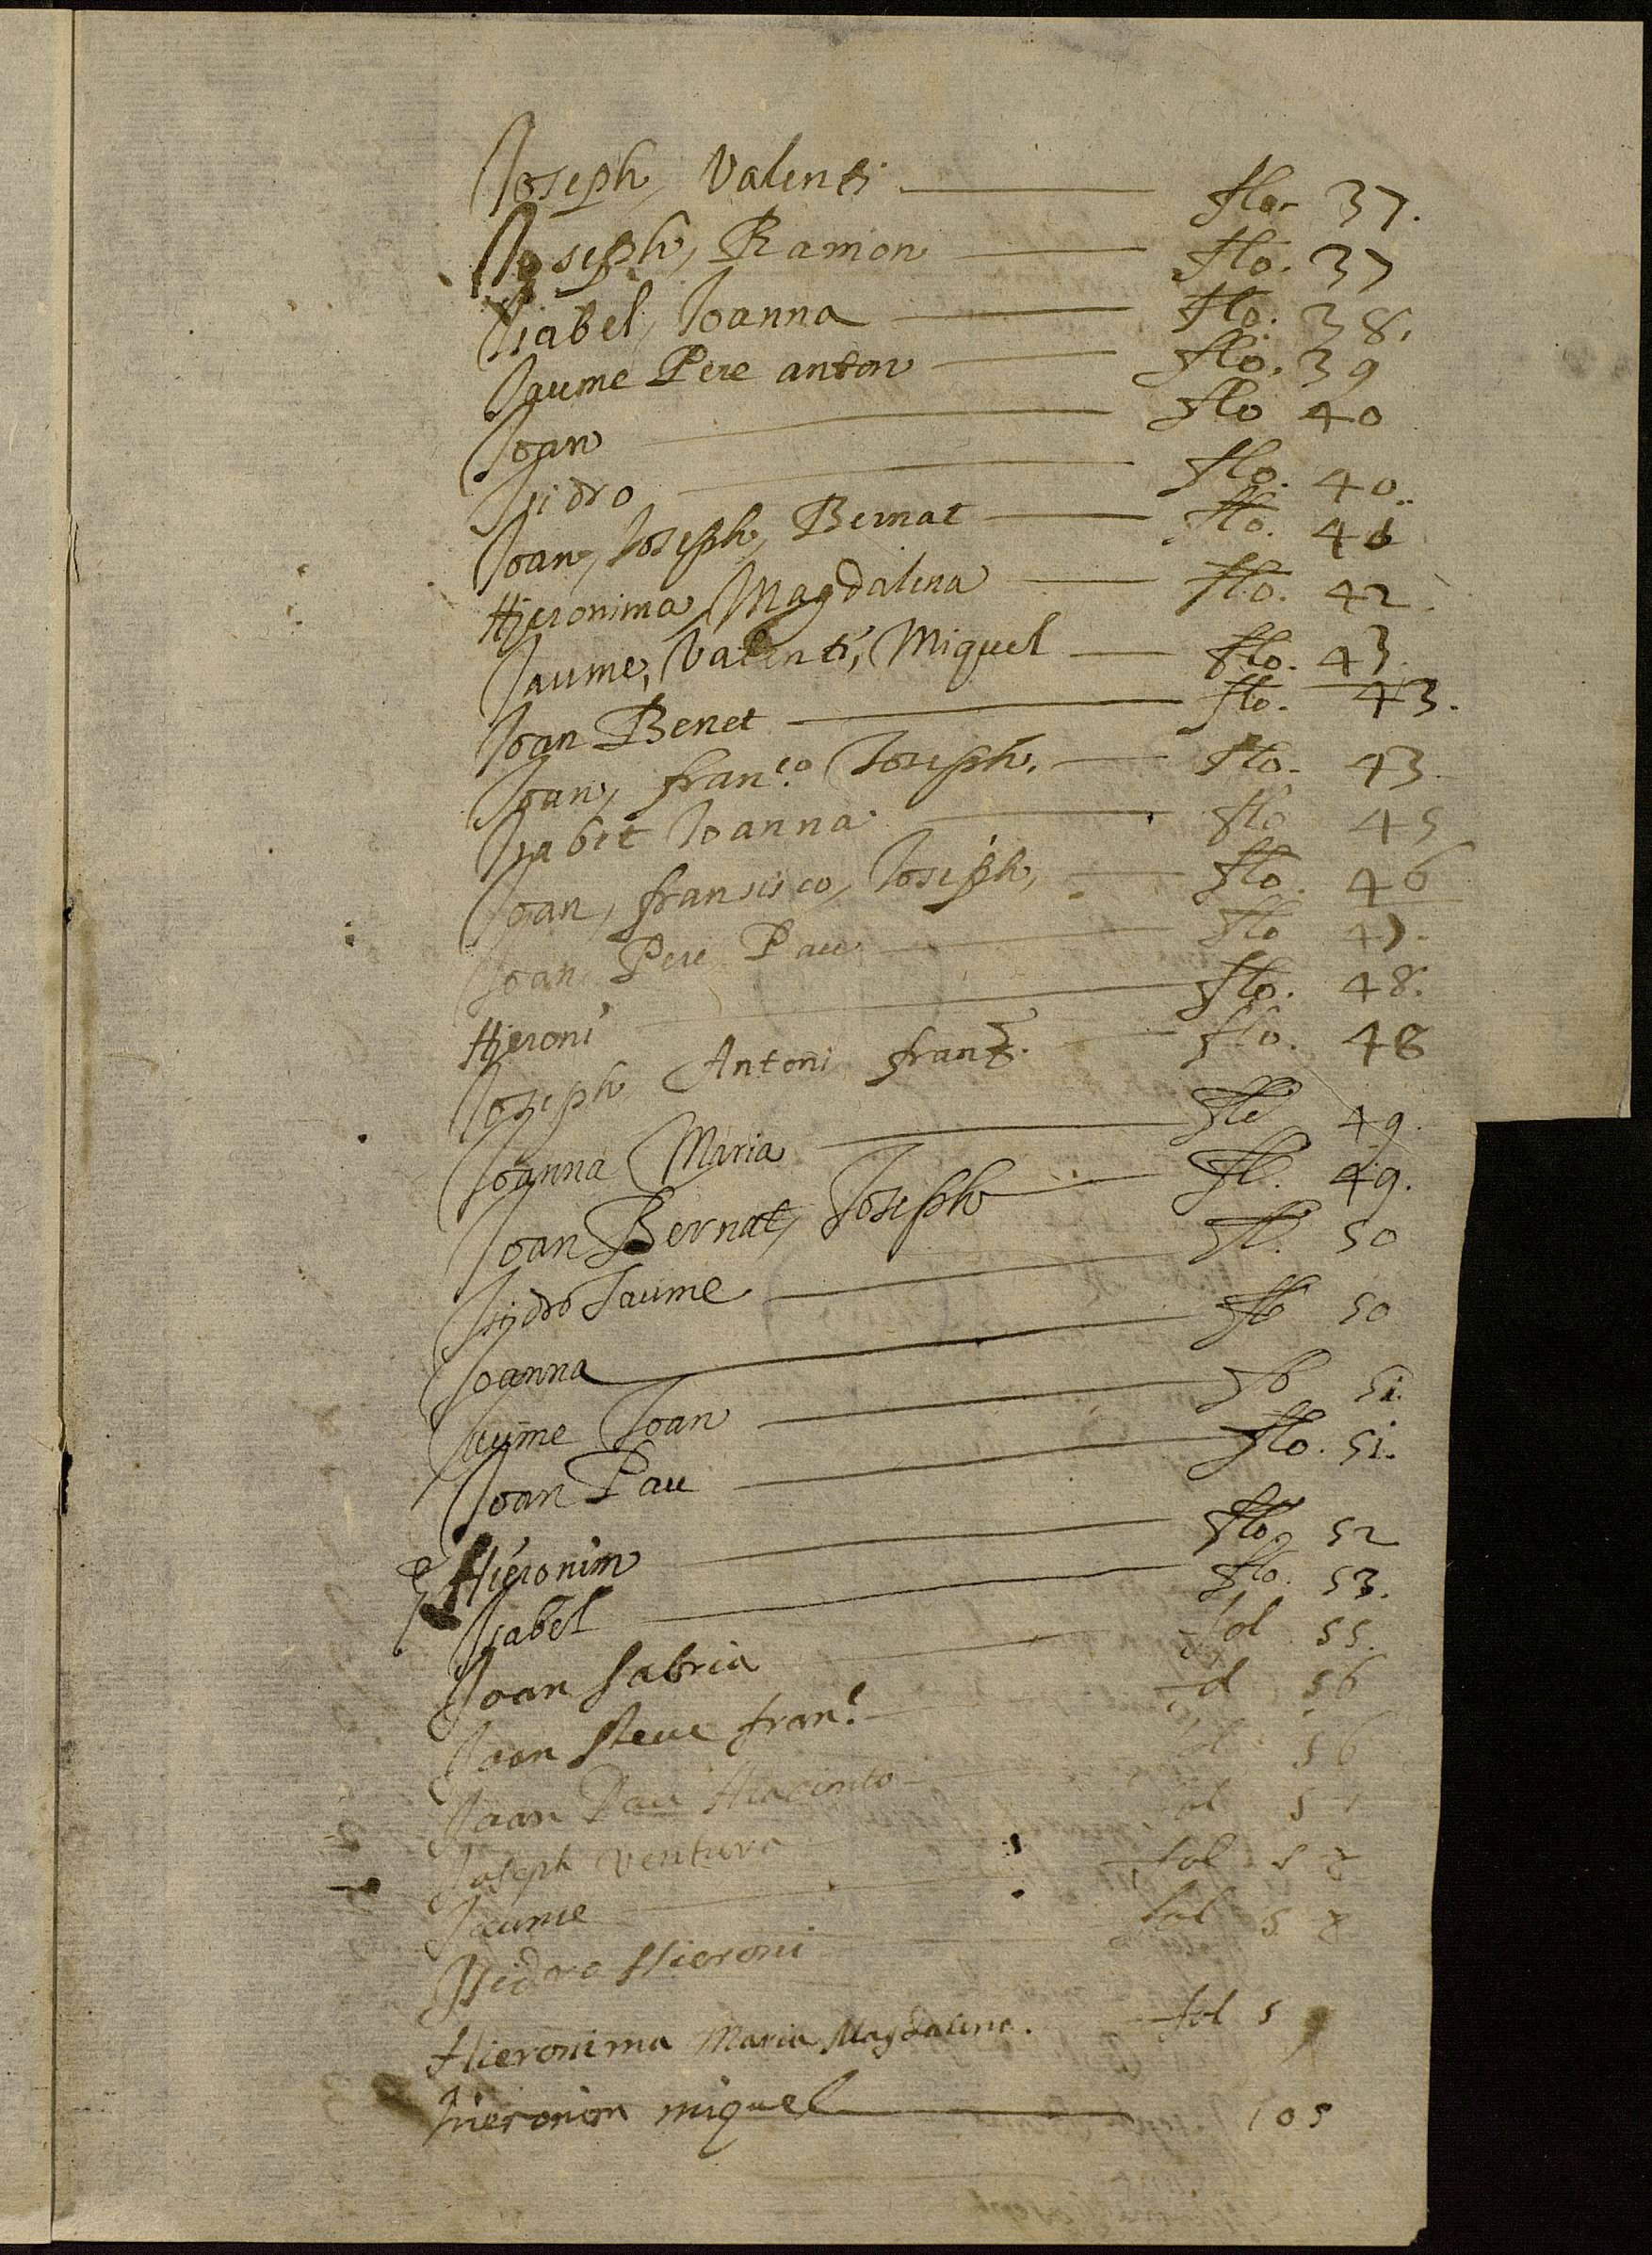 Joseph, Valenti —— flo. 37.
Joseph, Ramon —— flo. 37
Isabel, Joanna —— flo. 38.
Jaume Pere anton —— flo. 39
Joan —— flo 40
Isidro —— flo. 40.
Joan, Joseph, Bernat —— flo. 41
Hieronima Magdalena —— flo. 42.
Jaume, Valenti, Miquel —— flo. 43.
Joan Benet —— flo. 43.
Joan, fran.co Joseph. —— flo. 43
Isabet Joanna —— flo 45
Joan, fransisco, Joseph, —— flo. 46
Joan Pere Pau —— flo 47.
Hieroni —— flo. 48.
Joseph Antoni —— flo. 48
Joanna Maria —— flo 49.
Joan Bernat, Joseph —— fl. 49.
Isydro Jaume —— fl. 50
Joanna —— fo 50
Jaume Joan —— fo 51.
Joan Pau —— flo. 51.
Hieronim —— flo. 52
Isabel —— flo. 53.
Joan Sabria —— fol 55.
Joan steve fran.c —— fol 56
Joan Pau Hiacinto —— fol 56
Joseph ventura —— fol 57
Jaume —— fol 58
Isidoro Hieroni —— fol 58
Hieronima Maria Magdalena. fol 59
hieronim miquel —— 105